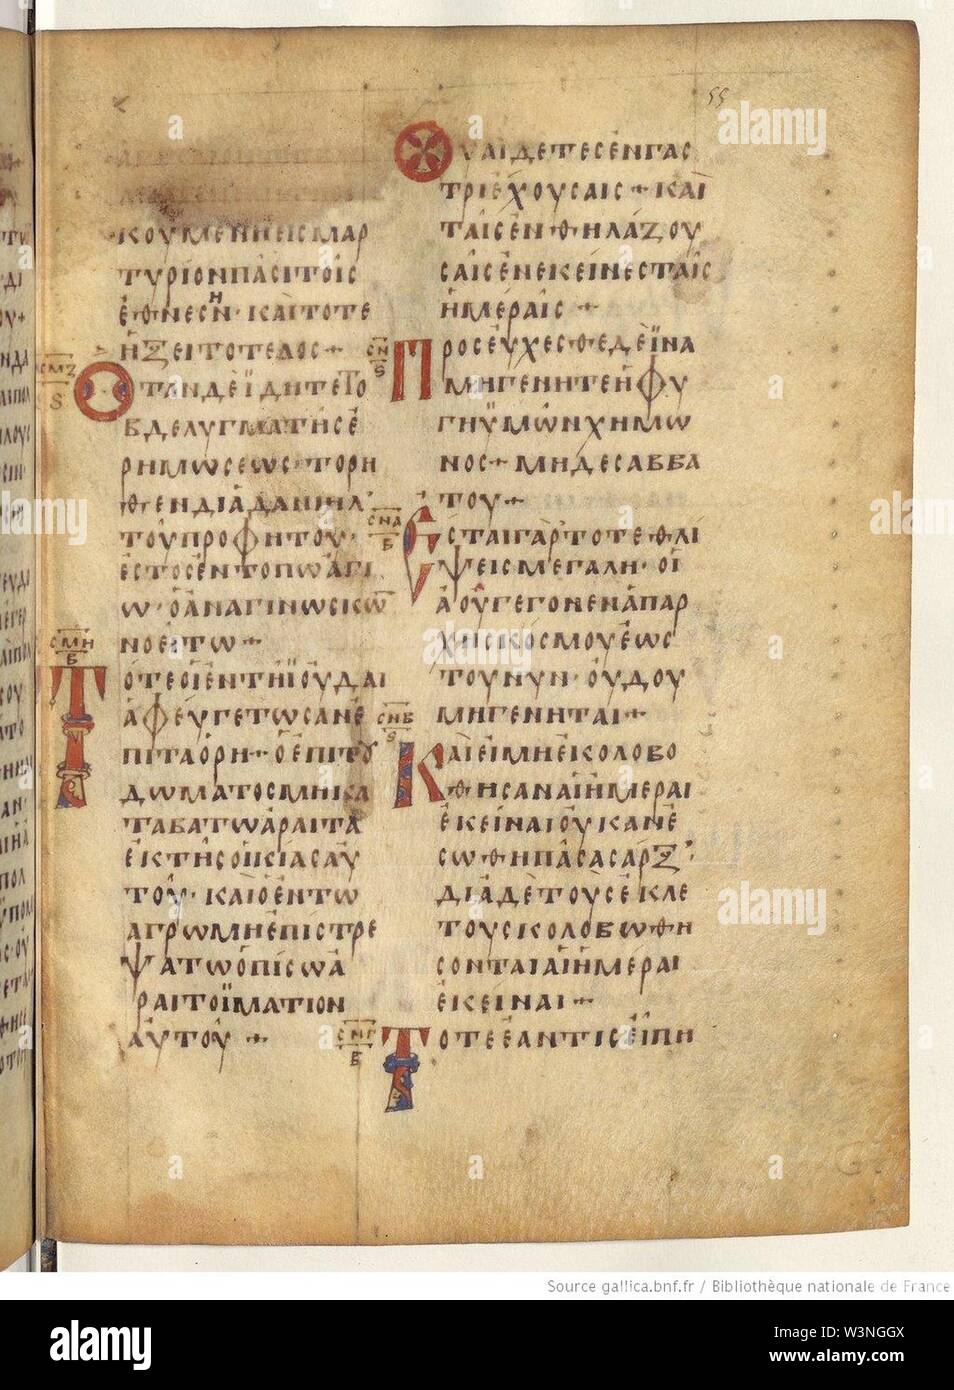 55
ΚΟΥΜΕΝΗΕΙΣΜΑΡ
ΤΥΡΙΟΝΠΑΣΙΤΟΙΣ
ΕΘΝΕΣΗΝ·ΚΑΙΤΟΤΕ
ΗΞΕΙΤΟΤΕΛΟΣ+
СΜΖ
S
ΟΤΑΝΔΕΪΔΗΤΕΤΟ
ΒΔΕΛΥΓΜΑΤΗΣΕ
ΡΗΜΩΣΕΩΣ·ΤΟΡΗ
ΘΕΝΔΙΑΔΑΝΙΗΛ
ΤΟΥΠΡΟΦΗΤΟΥ·
ΕΣΤΟΣΕΝΤΟΠΩΑΓΙ
Ω·ΟΑΝΑΓΙΝΩΣΚΩ
ΝΟΕΙΤΩ+
СΜΗ
Β
ΤΟΤΕΟΙΕΝΤΗΪΟΥΔΑΙ
ΑΦΕΥΓΕΤΩΣΑΝΕ
ΠΙΤΑΟΡΗ+ΟΕΠΙΤΟΥ
ΔΩΜΑΤΟΣΜΗΚΑ
ΤΑΒΑΤΩΑΡΑΙΤΑ
ΕΚΤΗΣΟΙΚΙΑΣΑΥ
ΤΟΥ·ΚΑΙΟΕΝΤΩ
ΑΓΡΩΜΗΕΠΙΣΤΡΕ
ΨΑΤΩΟΠΙΣΩΑ
ΡΑΙΤΟΪΜΑΤΙΟΝ
ΑΥΤΟΥ+
ΟΥΑΙΔΕΤΕΣΕΝΓΑΣ
ΤΡΙΕΧΟΥΣΑΙΣ+ΚΑΪ
ΤΑΙΣΕΝΘΗΛΑΖΟΥ
ΣΑΙΣΕΝΕΚΕΙΝΕΣΤΑΙΣ
ΗΜΕΡΑΙΣ+
СΝ
S
ΠΡΟΣΕΥΧΕΣΘΕΔΕΪΝΑ
ΜΗΓΕΝΗΤΕΗΦΥ
ΓΗΫΜΩΝΧΗΜΩ
ΝΟΣ+ΜΗΔΕΣΑΒΒΑ
ΤΟΥ+
СΝΑ
Β
ΕΣΤΑΙΓΑΡΤΟΤΕΘΛΙ
ΨΕΙΣΜΕΓΑΛΗ·ΟΙ
ΑΟΥΓΕΓΟΝΕΝΑΠΑΡ
ΧΗΣΚΟΣΜΟΥΕΩΣ
ΤΟΥΝΥΝ·ΟΥΔΟΥ
ΜΗΓΕΝΗΤΑΙ+
СΝΒ
S
ΚΑΙΕΙΜΗΕΚΟΛΟΒΟ
ΘΗΣΑΝΑΙΗΜΕΡΑΙ
ΕΚΕΙΝΑΙΟΥΚΑΝΕ
ΣΩΘΗΠΑΣΑΣΑΡΞ·
ΔΙΑΔΕΤΟΥΣΕΚΛΕ
ΤΟΥΣΚΟΛΟΒΩΘΗ
ΣΟΝΤΑΙΑΙΗΜΕΡΑΙ
ΕΚΕΙΝΑΙ+
СΝΓ
Β
ΤΟΤΕΕΑΝΤΙΣΕΙΠΗ
Source gallica.bnf.fr / Bibliothèque nationale de France
alamy
Image ID: W3NGGX
www.alamy.com